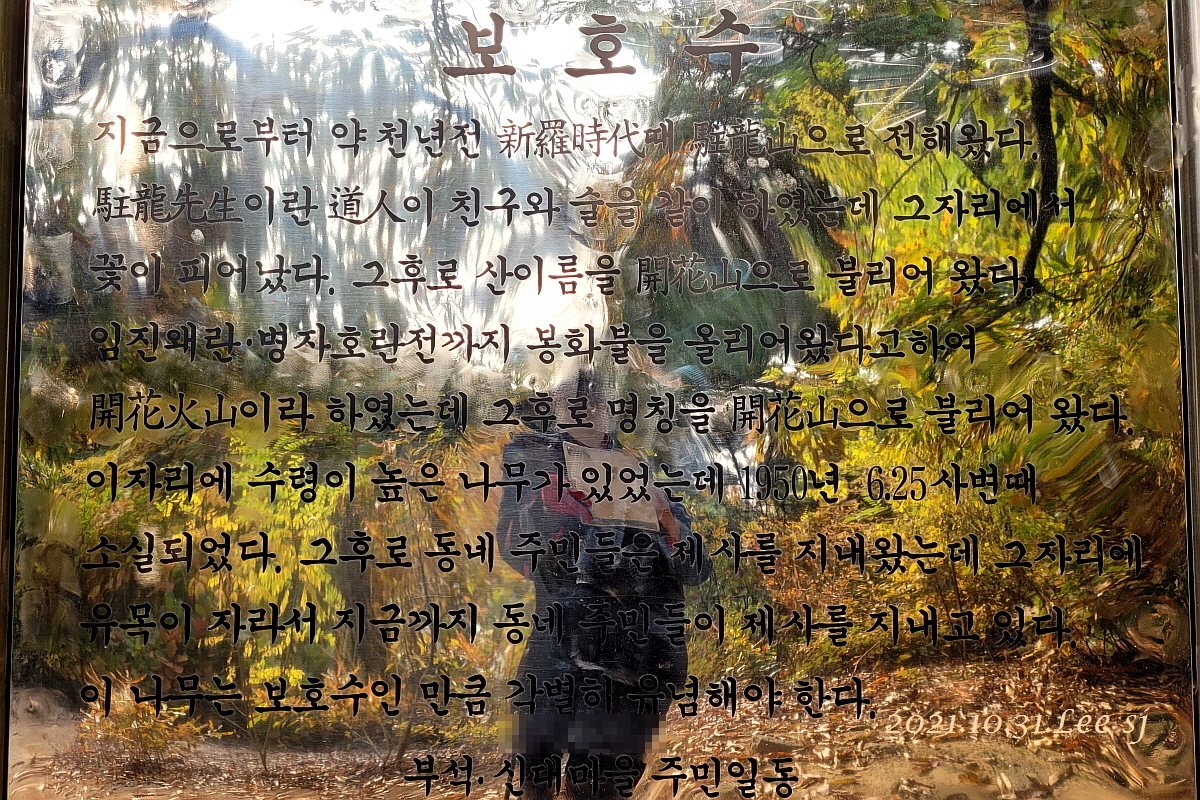 보호수
지금으로부터 약 천년전 新羅時代때 駐龍山으로 전해왔다.
駐龍先生이란 道人이 친구와 술을 같이 하였는데 그자리에서
꽃이 피어났다. 그후로 산이름을 開花山으로 불리어 왔다.
임진왜란·병자호란전까지 봉화불을 올리어왔다고하여
開花火山이라 하였는데 그후로 명칭을 開花山으로 불리어 왔다.
이자리에 수령이 높은 나무가 있었는데 1950년 6.25사변때
소실되었다. 그후로 동네 주민들은 제사를 지내왔는데 그자리에
유목이 자라서 지금까지 동네 주민들이 제사를 지내고 있다.
이 나무는 보호수인 만큼 각별히 유념해야 한다.
2021.10.31 Lee sj
부석·신대마을 주민일동